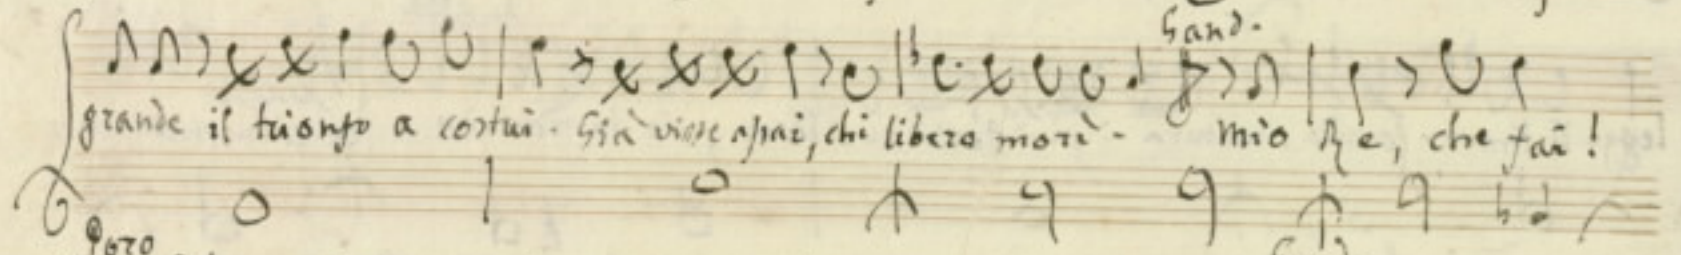 Gand.
grande il trionfo a costui. Già visse assai, chi libero morì. mio Re, che fai!
Poro